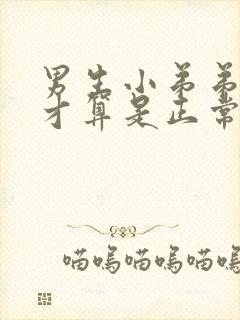 男生小弟弟
才算是正常
喵呜喵呜喵呜